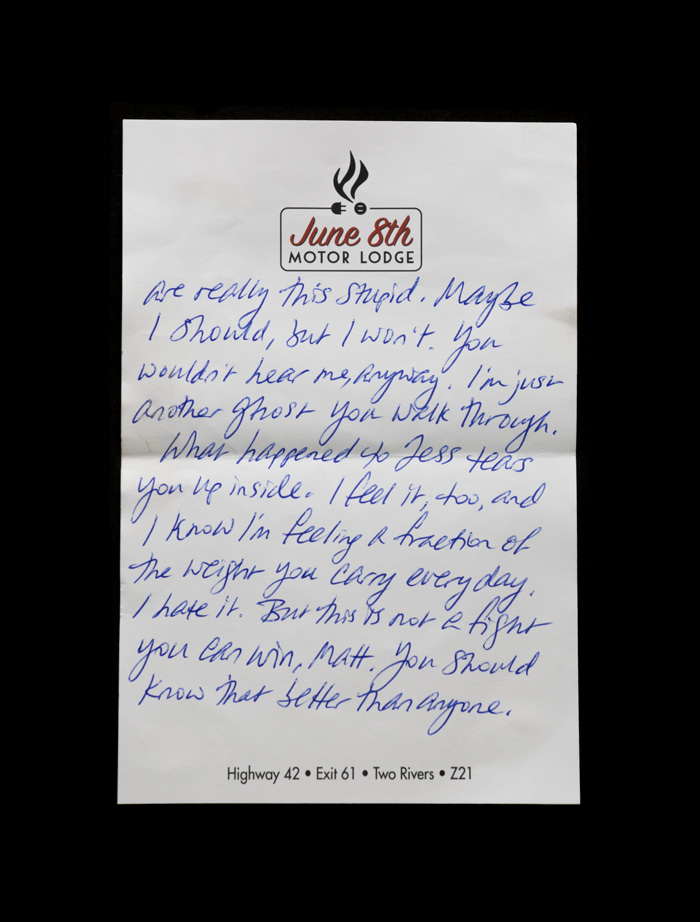 June 8th
MOTOR LODGE
are really this stupid. Maybe
I should, but I won't. You
wouldn't hear me, anyway. I'm just
another ghost you walk through.
What happened to Jess tears
you up inside. I feel it, too, and
I know I'm feeling a fraction of
the weight you carry every day.
I hate it. But this is not a fight
you can win, Matt. You should
know that better than anyone.
Highway 42 • Exit 61 • Two Rivers • Z21